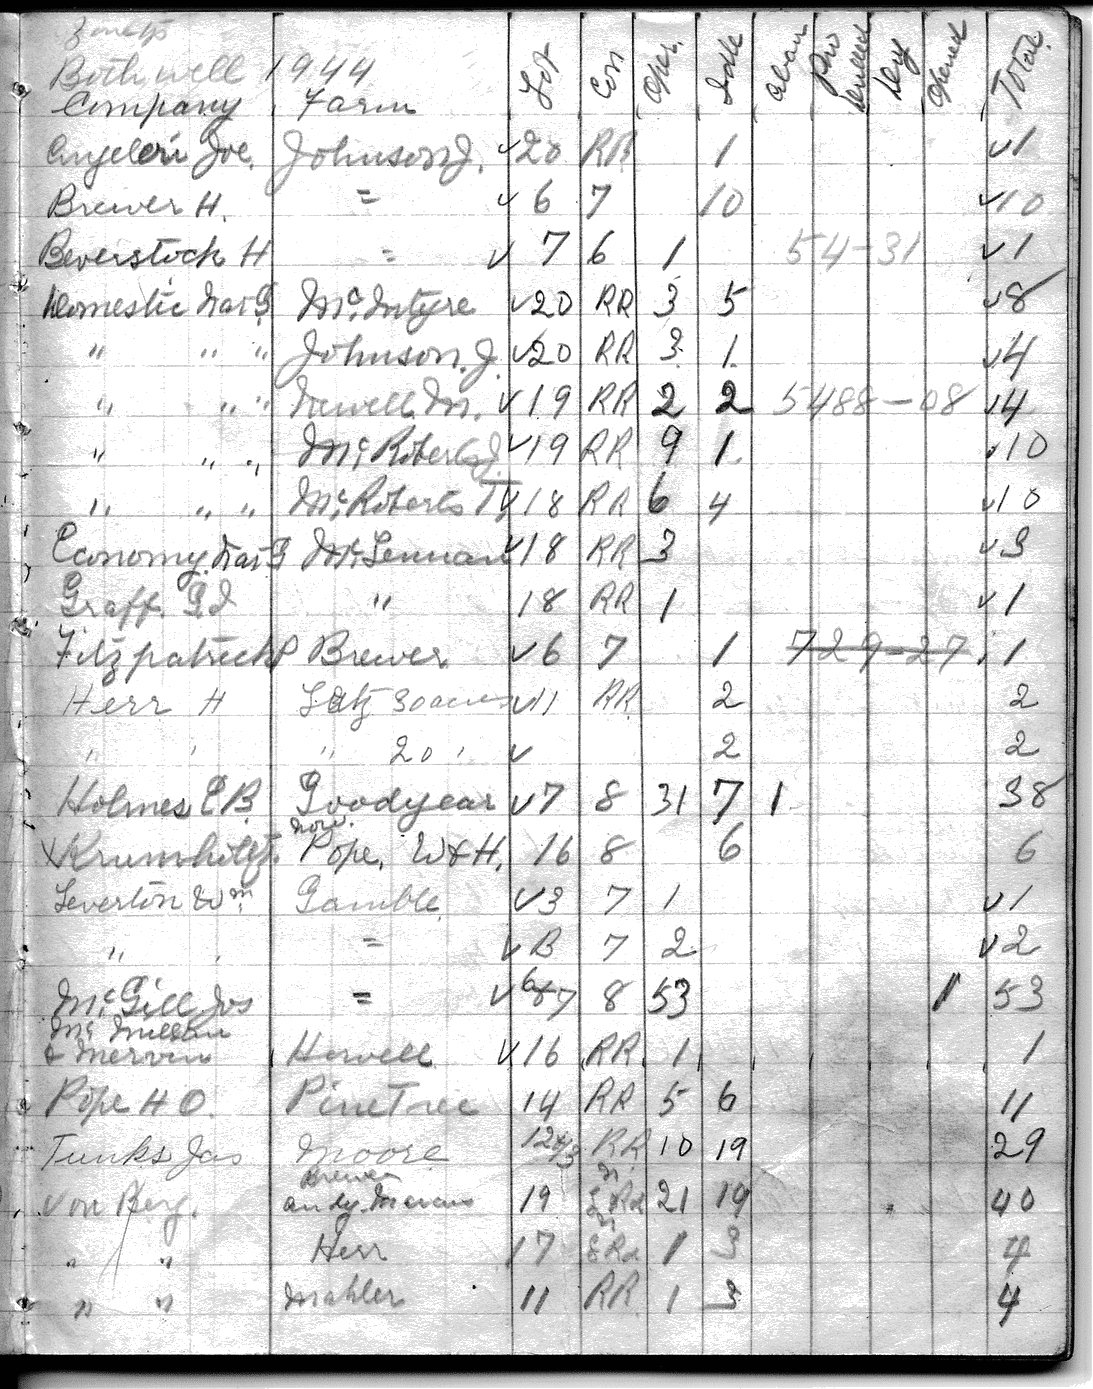 Bothwell 1944
Company Farm Lot Con Oper. Idle Aban Pro Drilled Dry Opened Total
Angeleri Joe. Johnson J. ✓20 RR 1 ✓1
Brewer H. = ✓6 7 10 ✓10
Beverstock H = ✓7 6 1 54-31 ✓1
Domestic Nat G. McIntyre ✓20 RR 3 5 ✓8
" " " Johnson. J. ✓20 RR 3 1 ✓4
" " " Newell. M. ✓19 RR 2 2 5488-08 ✓4
" " " McRoberts J. ✓19 RR 9 1 ✓10
" " " McRoberts T. ✓18 RR 6 4 ✓10
Economy. Nat G McLennan ✓18 RR 3 ✓3
Graff. G I " 18 RR 1 ✓1
Fitzpatrick P Brewer ✓6 7 1 729-27 1
Herr H 30 acres ✓11 RR 2 2
" ' " 20 ' ✓ 2 2
Holmes C B. Goodyear ✓7 8 31 7 1 38
now.
Pope, W & H. 16 8 6 6
Leverton Wm. Gamble ✓3 7 1 ✓1
" ' = ✓B 7 2 ✓2
McGill Jos = ✓6&7 8 53 1 53
McMillan
& Mervin Howell ✓16 RR 1 1
Pope H O. Pine Tree 14 RR 5 6 11
Tunks Jas Moore 12&13 RR 10 19 29
Brewer
Von Berg. Andy. 19 Rd 21 19 40
" " Herr 17 Rd 1 3 4
" " Mahler 11 RR 1 3 4